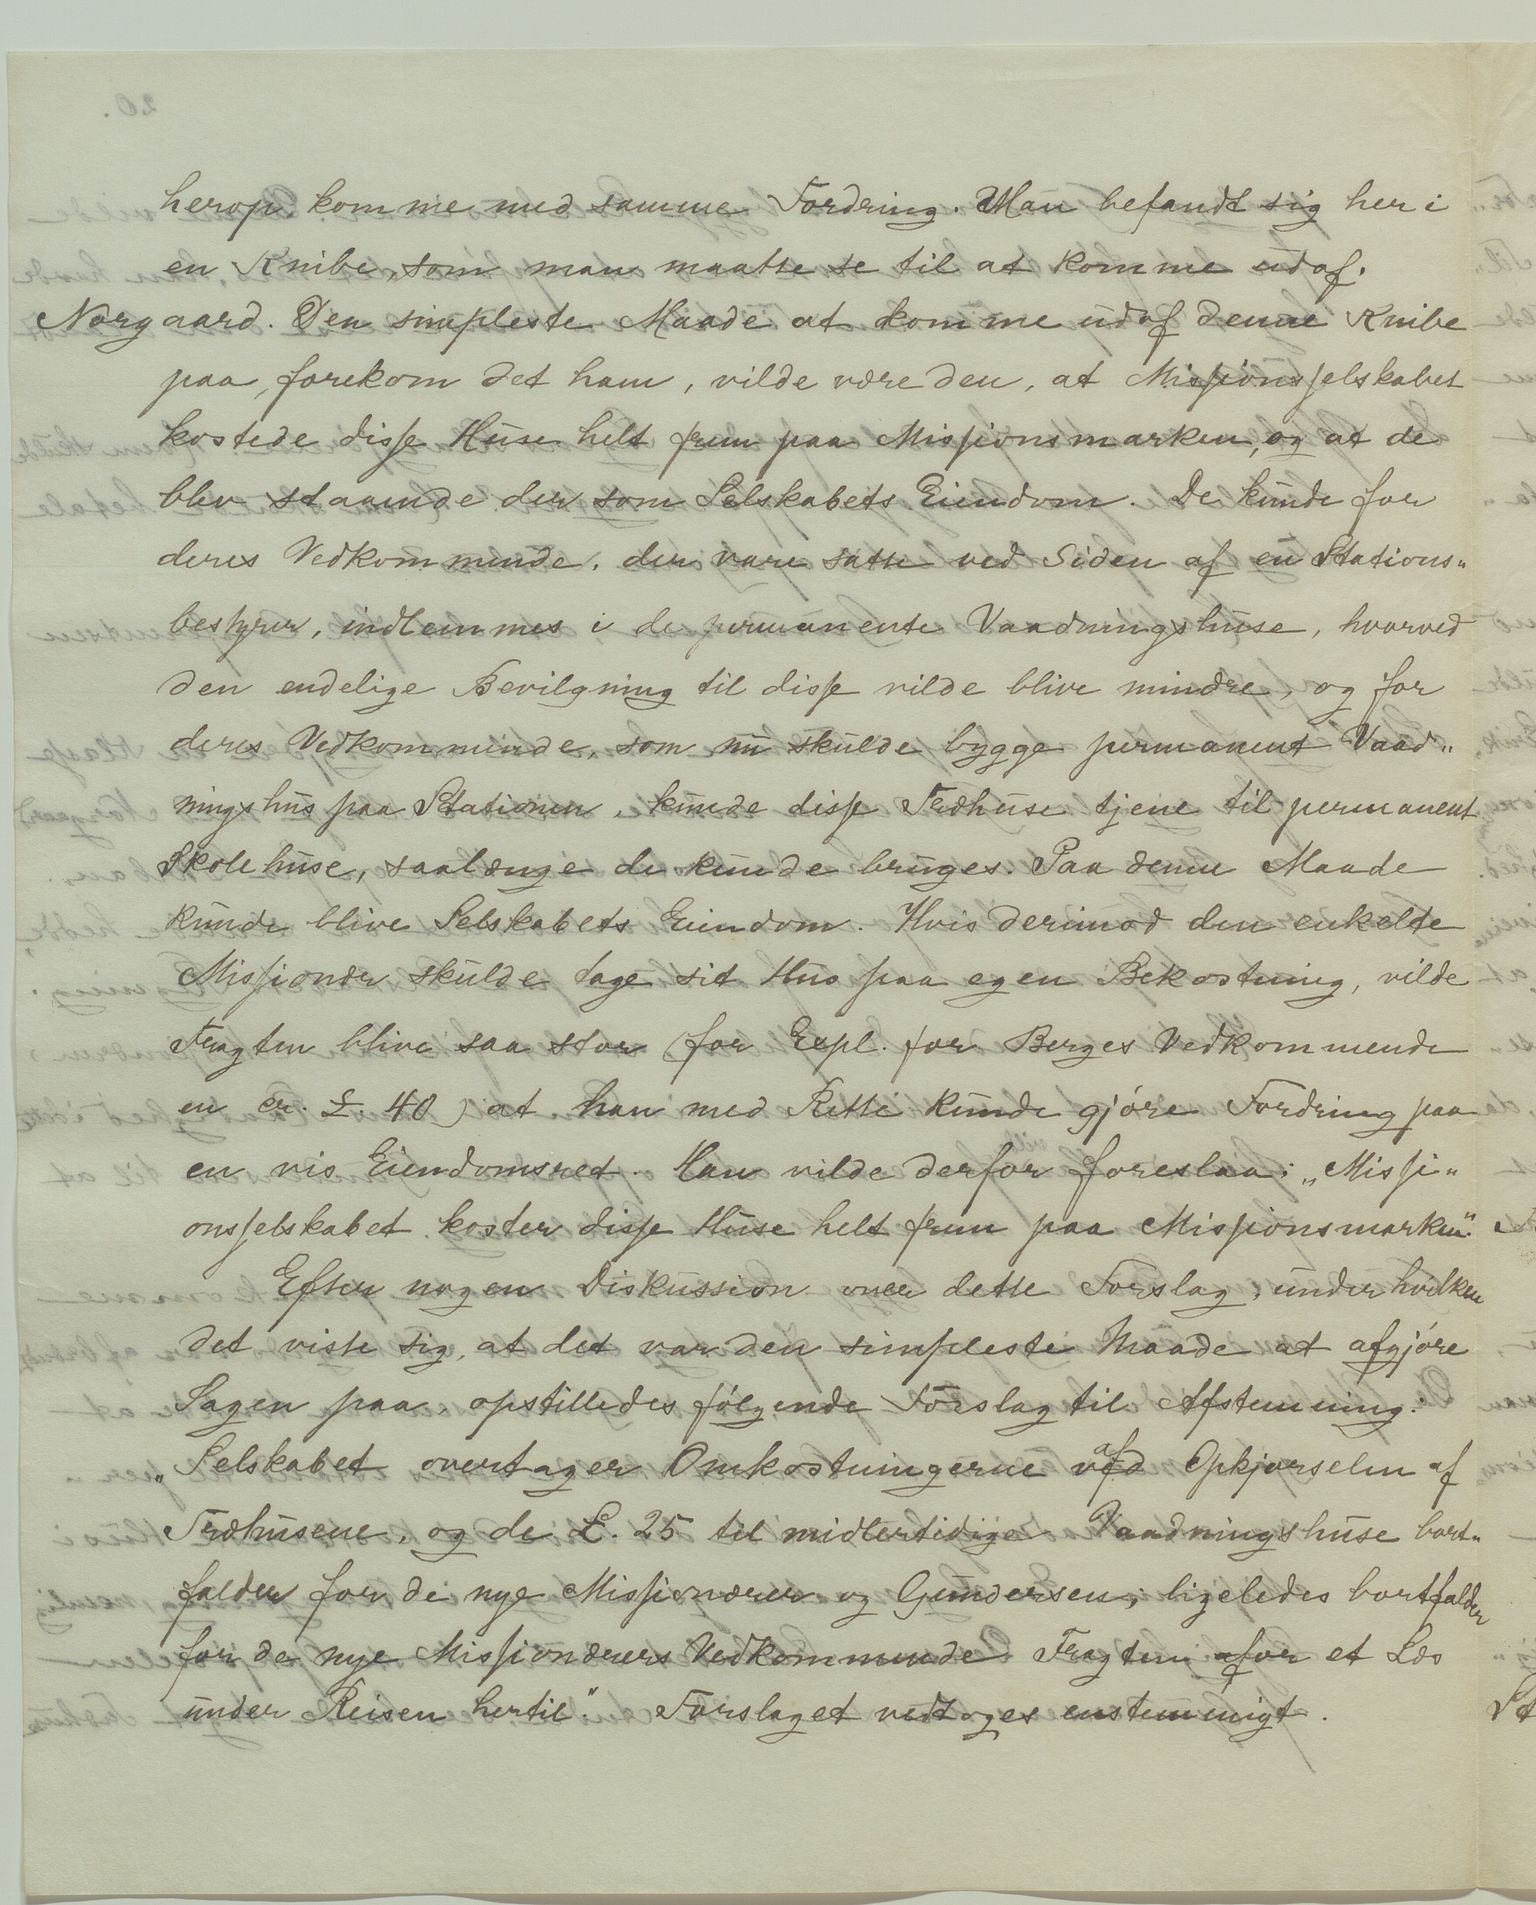 herop komme med samme Fordring. Man befandt sig her i
en Knibe, som man maatte se til at komme udaf.
Norgaard. Den simpleste Maade at komme udaf denne Knibe
paa, forekom det ham, vilde være den, at Missionsselskabet
kostede disse Huse helt frem paa Missionsmarken, og at de
blev staaende der som Selskabets Eiendom. De kunde for
deres Vedkommende, der vare satte ved Siden af en Stations„
bestyrer, indlemmes i de permanente Vaaningshuse, hvorved
den endelige Bevilgning til disse vilde blive mindre, og for
deres Vedkommende, som nu skulde bygge permanent Vaad„
ningshus paa Stationen, kunde disse Træhuse tjene til permanent
Skolehuse, saalænge de kunde bruges. Paa denne Maade
kunde blive Selskabets Eiendom. Hvis derimod den enkelte
Missionær skulde tage sit Hus paa egen Bekostning, vilde
Fragten blive saa stor (for Expl. for Berges Vedkommende
en cr. £. 40) at han med Rette kunde gjøre Fordring paa
en vis Eiendomsret. Han vilde derfor foreslaa: „Missi„
onsselskabet koster disse Huse helt frem paa Missionsmarken."
Efter nogen Diskussion over dette Forslag, under hvilken
det viste sig, at det var den simpleste Maade at afgjøre
Sagen paa, opstilledes følgende Forslag til Afstemning:
„Selskabet overtager Omkostningerne af Opkjørselen af
Træhusene, og de £. 25 til midlertidige Vaadningshuse bort„
falder for de nye Missionærer og Gundersen; ligeledes bortfalder
for de nye Missionærers Vedkommende Fragten for et Læs
under Reisen hertil." Forslaget vedtoges enstemmigt.